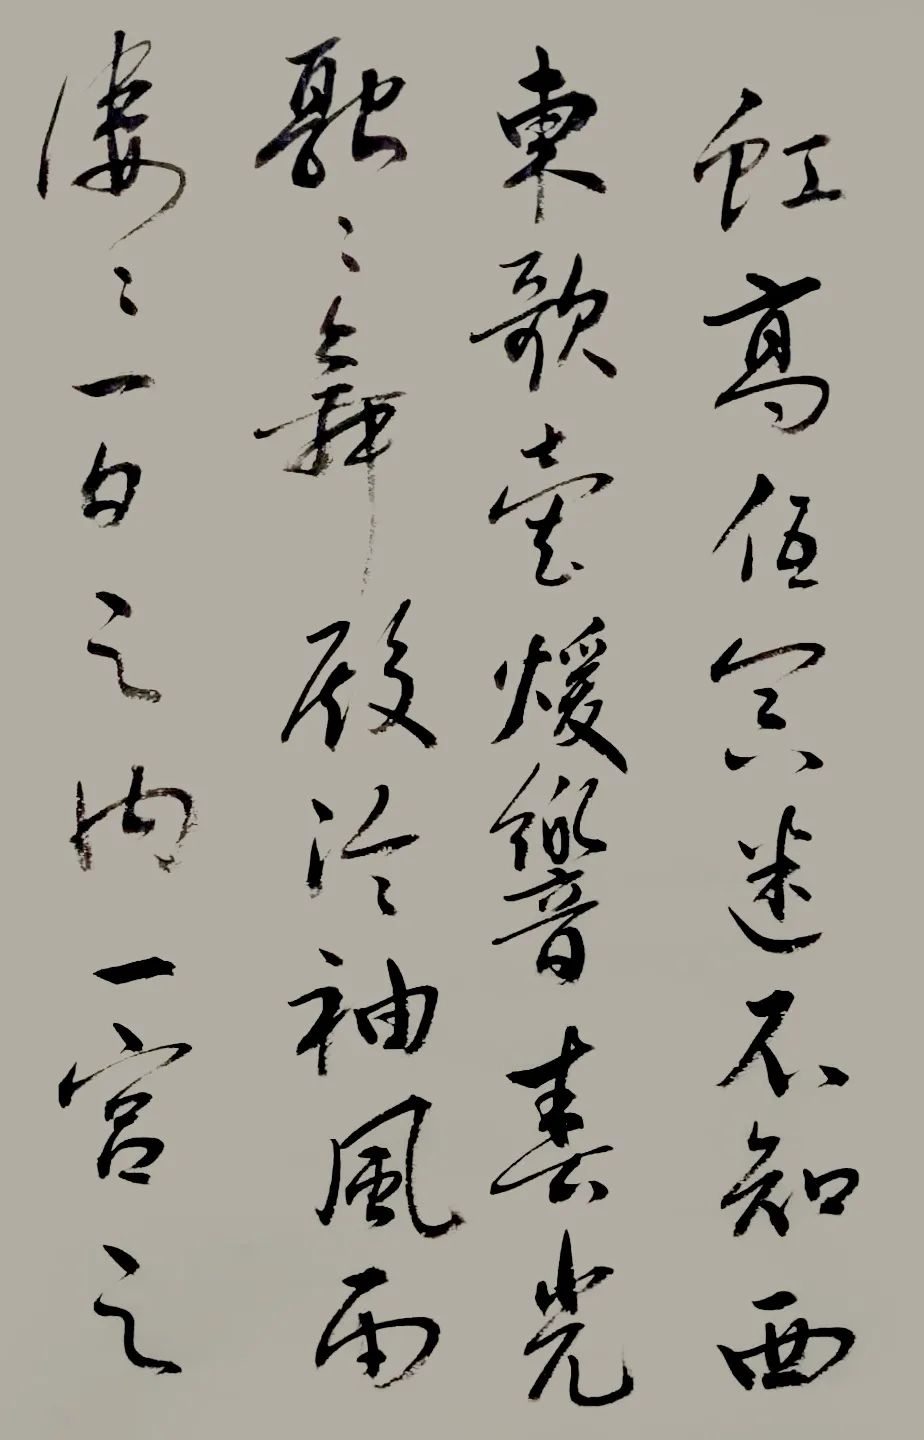 虹高低冥迷不知西
東歌臺煖響春光
融〻舞殿冷袖風雨
淒〻一日之內一宮之